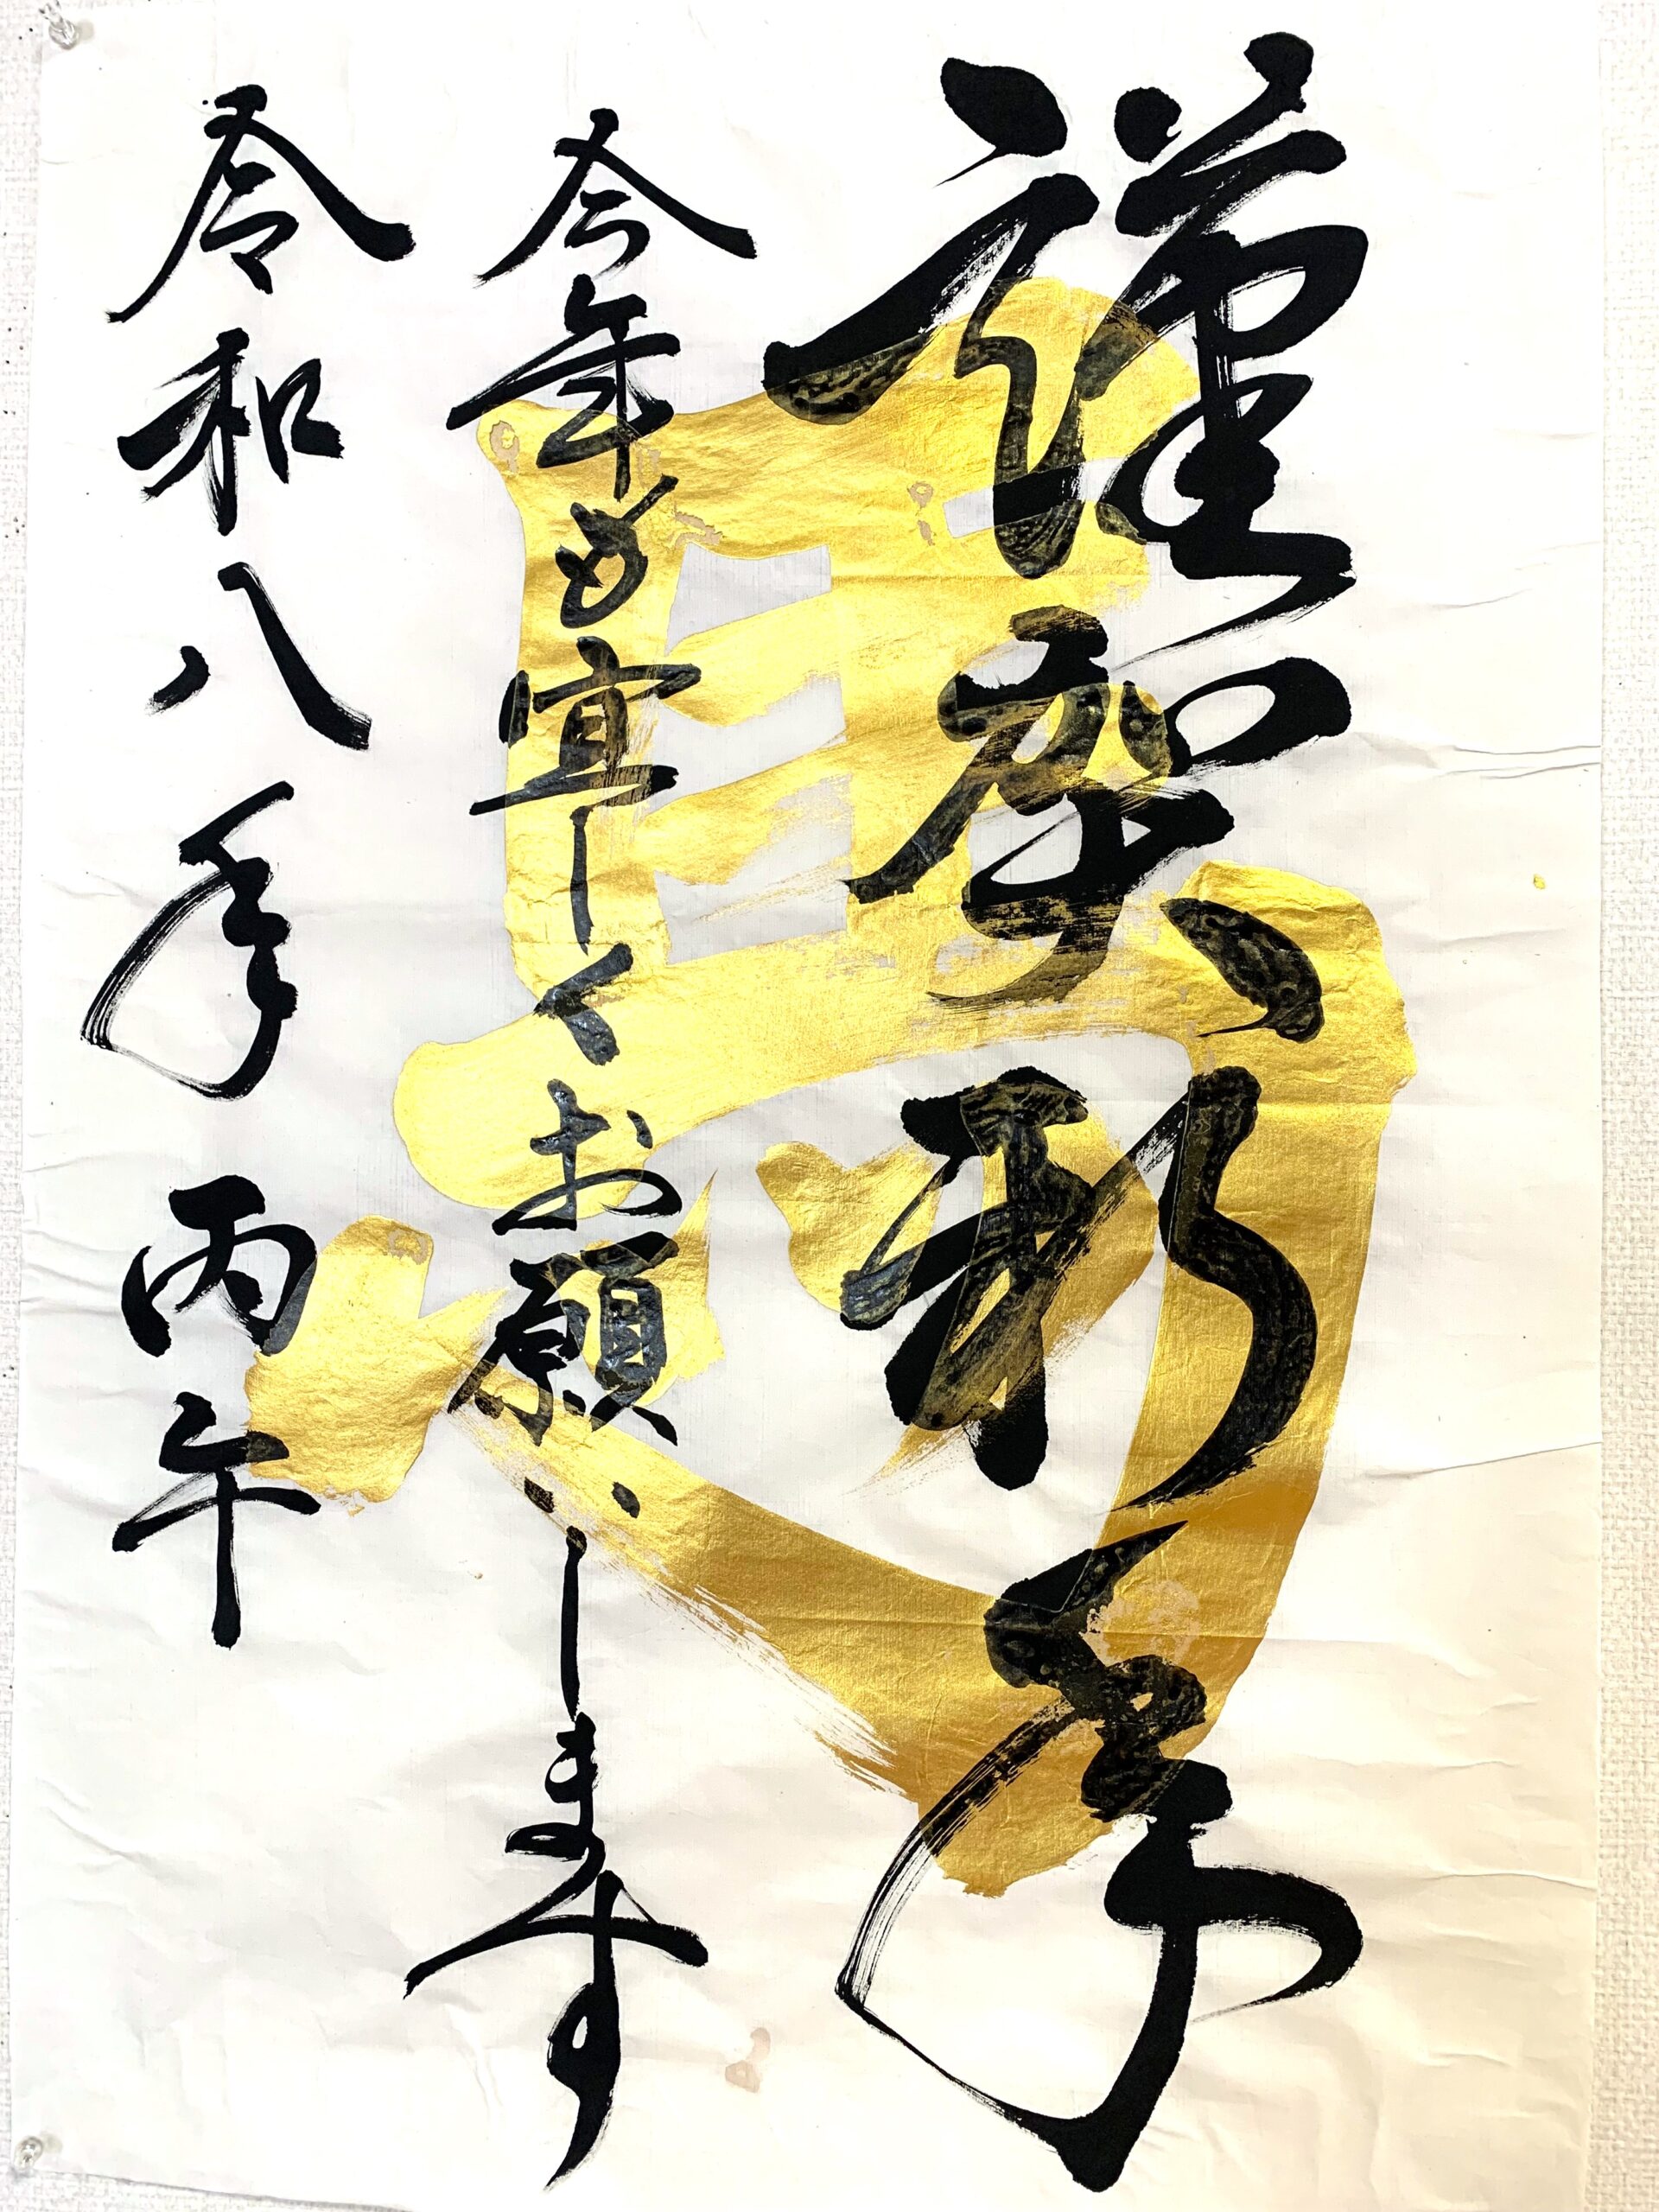 謹賀新年
今年も宜しくお願いします
令和八年 丙午
馬